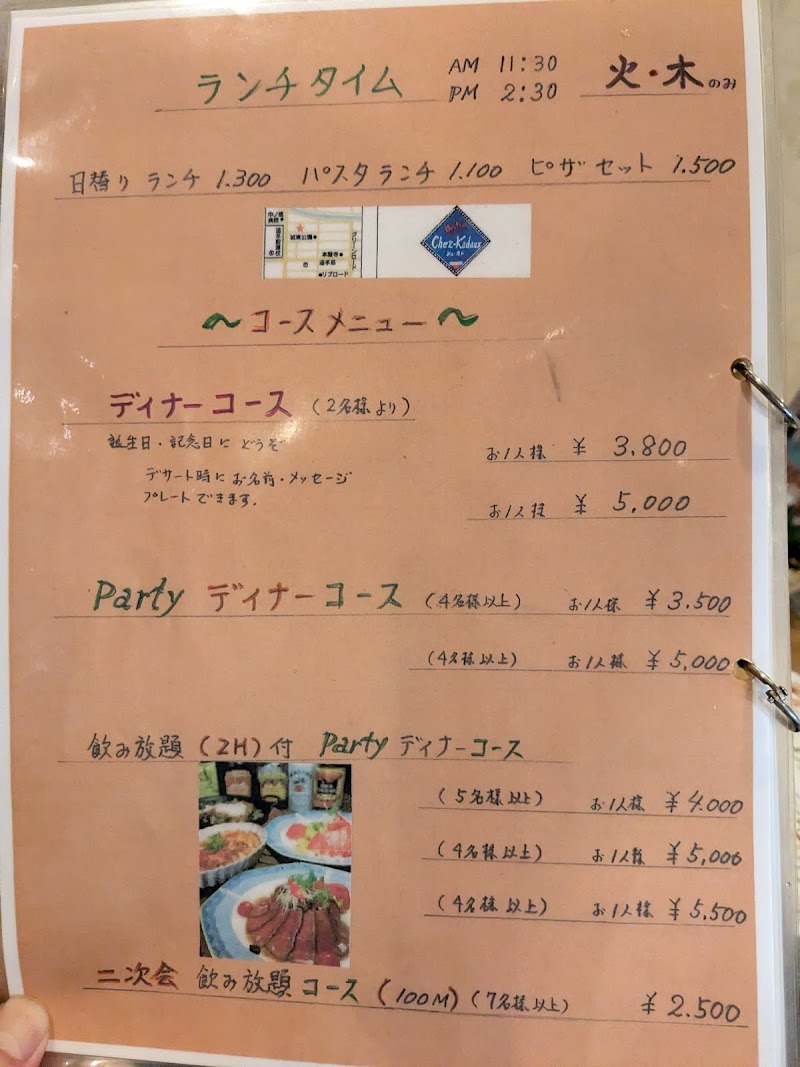 ランチタイム AM 11:30 火・木のみ
PM 2:30
日替り ランチ 1.300 パスタランチ 1.100 ピザセット 1.500
Chez-Kadoux
〜コースメニュー〜
ディナーコース (2名様より)
誕生日・記念日に どうぞ お1人様 ¥ 3.800
デザート時に お名前・メッセージ
プレートできます. お1人様 ¥ 5,000
Party ディナーコース (4名様以上) お1人様 ¥3.500
(4名様以上) お1人様 ¥5,000
飲み放題(2H)付 Partyディナーコース
(5名様以上) お1人様 ¥4.000
(4名様以上) お1人様 ¥5,000
(4名様以上) お1人様 ¥5,500
二次会 飲み放題コース (100M) (7名様以上) ¥2.500